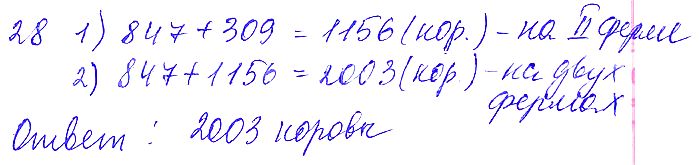 28 1) 847 + 309 = 1156 (кор.) - на II ферме
2) 847 + 1156 = 2003 (кор) - на двух
фермах
Ответ : 2003 коровы